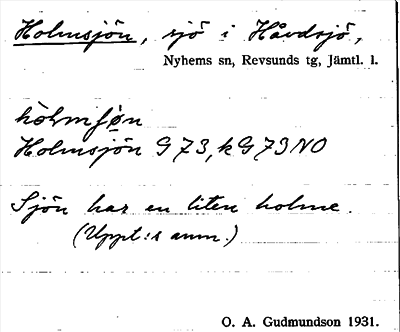 Holmsjön, sjö i Håvdsjö,
Nyhems sn, Revsunds tg, Jämtl. l.
hòlmʃø̣n
Holmsjön G 73, kG 73 NO
Sjön har en liten holme.
(Uppt:s anm.)
O. A. Gudmundson 1931.